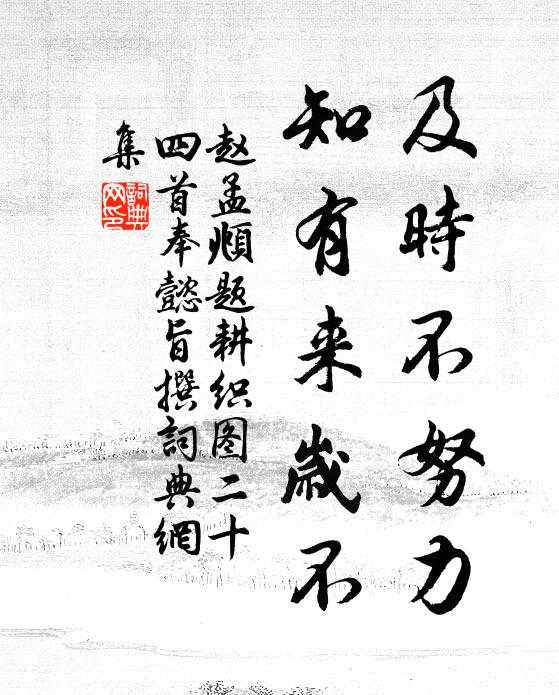 及時不努力
知有来歲不
赵孟頫題耕织图二十
四首奉懿旨撰詞典網
集
詞典網印